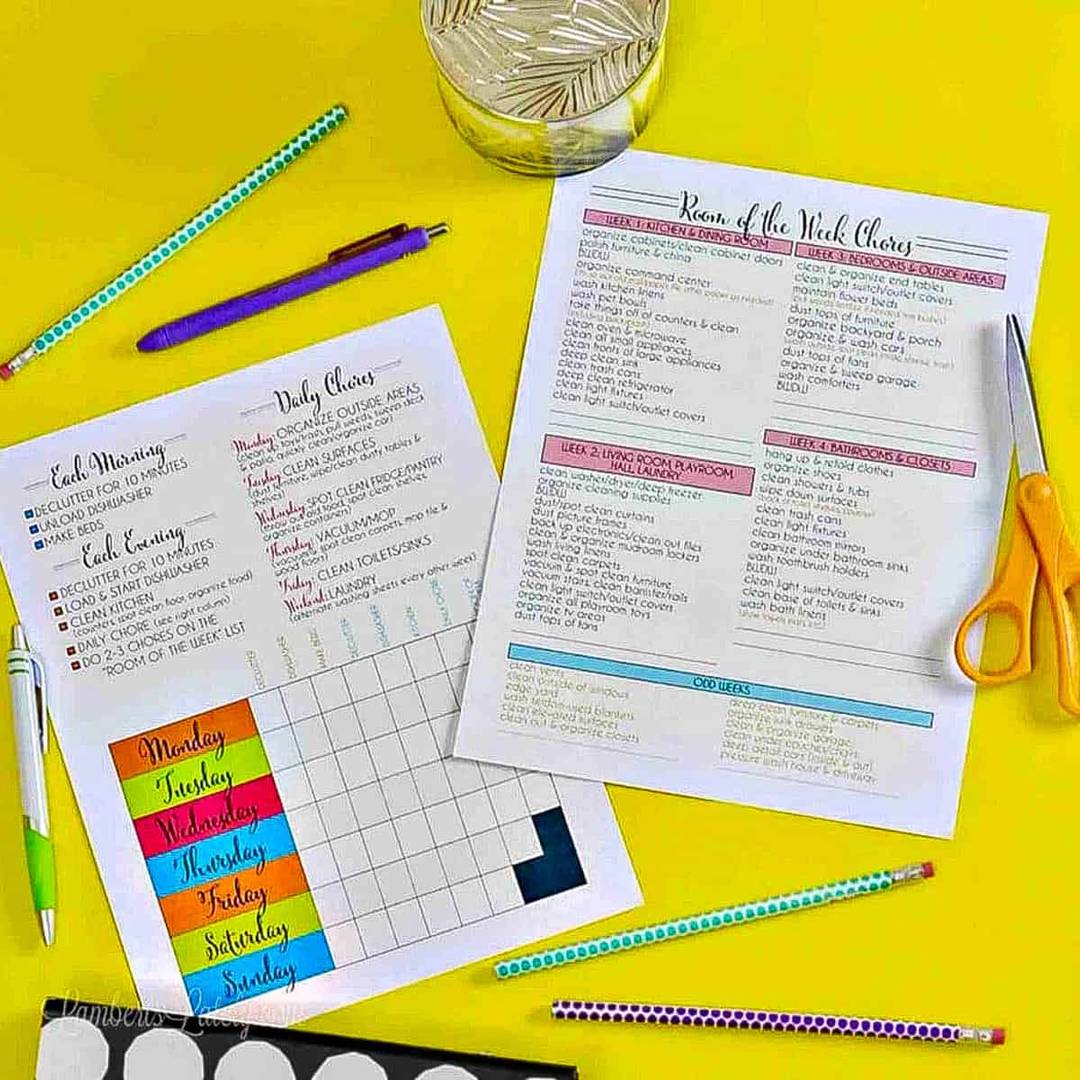 Each Morning
DECLUTTER FOR 10 MINUTES
UNLOAD DISHWASHER
MAKE BEDS
Each Evening
DECLUTTER FOR 10 MINUTES
LOAD & START DISHWASHER
CLEAN KITCHEN
(counters, spot clean floor, organize food)
DAILY CHORE (see right column)
DO 2-3 CHORES ON THE
"ROOM OF THE WEEK" LIST
Daily Chores
Monday: ORGANIZE OUTSIDE AREAS
(clean up yard/trash, pull weeds, sweep deck
& patio, quickly clean/organize car)
Tuesday: CLEAN SURFACES
(dust furniture, wipe/clean dusty tables &
Wednesday: SPOT CLEAN FRIDGE/PANTRY
(throw out old food, spot clean shelves,
organize containers)
Thursday: VACUUM/MOP
(vacuum & spot clean carpets, mop tile &
wood floors)
Friday: CLEAN TOILETS/SINKS
Weekend: LAUNDRY
(alternate washing sheets every other week)
Monday
Tuesday
Wednesday
Thursday
Friday
Saturday
Sunday
Room of the Week Chores
WEEK 1: KITCHEN & DINING ROOM
organize cabinets/clean cabinet doors
polish furniture & china
BWDW
organize command center
wash kitchen linens
wash pet bowls
take things off of counters & clean
clean oven & microwave
clean all small appliances
clean fronts of large appliances
deep clean sink
clean trash cans
deep clean refrigerator
clean light fixtures
clean light switch/outlet covers
WEEK 2: LIVING ROOM, PLAYROOM,
HALL, LAUNDRY
clean washer/dryer/deep freezer
organize cleaning supplies
BWDW
dust/spot clean curtains
dust picture frames
back up electronics/clean out files
clean & organize mudroom lockers
wash living linens
spot clean carpets
vacuum & spot clean furniture
vacuum stairs, clean banister/rails
clean light switch/outlet covers
organize all playroom toys
organize tv areas
dust tops of fans
WEEK 3: BEDROOMS & OUTSIDE AREAS
clean & organize end tables
clean light switch/outlet covers
maintain flower beds
dust tops of furniture
organize backyard & porch
organize & wash cars
dust tops of fans
organize & sweep garage
wash comforters
BWDW
WEEK 4: BATHROOMS & CLOSETS
hang up & refold clothes
organize shoes
clean showers & tubs
wipe down surfaces
clean trash cans
clean light fixtures
clean bathroom mirrors
organize under bathroom sinks
wash toothbrush holders
BWDW
clean light switch/outlet covers
clean base of toilets & sinks
wash bath linens
ODD WEEKS
clean vents
clean outside of windows
edge yard
wash seldom-used blankets
clean bricked surfaces
clean out & organize closets
deep clean furniture & carpets
organize junk drawers
clean & organize storage
deep detail cars (inside & out)
pressure wash house & driveway